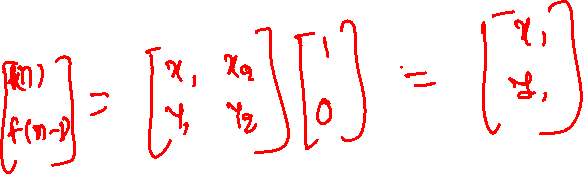 [f(n) f(n-1)] = [x₁ x₂ y₁ y₂] [1 0] = [x₁ y₁]